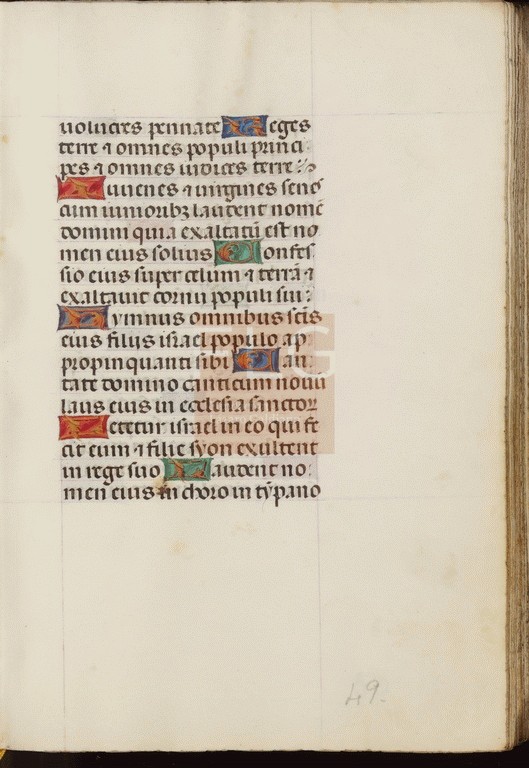 uolucres pennate Reges
terre ⁊ omnes populi princi
pes ⁊ omnes iudices terre
Iuuenes ⁊ uirgines senes
cum iunioribꝫ laudent nomē
domini quia exaltatū est no
men eius solius Confes
sio eius super celum ⁊ terrā ⁊
exaltauit cornu populi sui:
Hymnus omnibus scīs
eius filijs israel populo ap
propinquanti sibi Can
tate domino canticum nouū
laus eius in ecclesia sanctoꝝ
Letetur israel in eo qui fe
cit eum ⁊ filie syon exultent
in rege suo Laudent no:
men eius in choro in tȳpano
FLG
49.